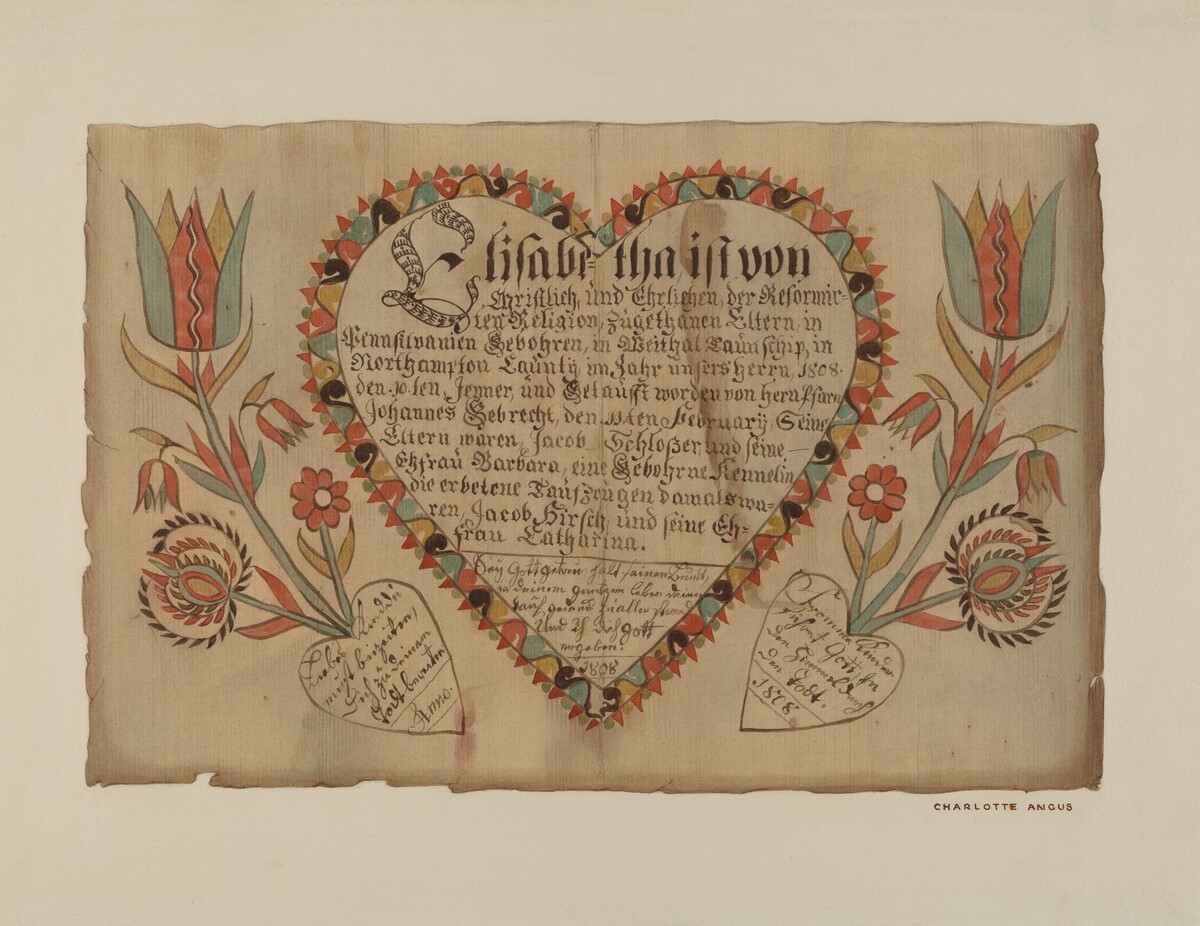 Elisabe= tha ist von
Christlich, und Ehrlichen, der Reformir=
ten Religion, zugethanen Eltern, in
Pennsilvanien Gebohren, in Weithal Taunschip, in
Northampton Caunty im Jahr unsers Herrn, 1808.
den .10.ten, Jenner, und Getaufft worden von Hern Pfarr
Johannes Gebrecht, den 11ten February, Seine
Eltern waren, Jacob Schloßer, und seine —
Ehfrau Barbara, eine Gebohrne Kennelin
die erbetene Taufzeugen damals wa=
ren, Jacob Hirsch, und seine Eh=
frau Catharina.
Sey Gott getreu halt seinen Bund,
in deinem gantzen leben deiner
Und Gott
ergeben.
1808
Liebe Kinder
must beizeiten
Dich zu deinem
Todt bereiten
Anno.
Fromme Kinder
Gott
den
den todt.
1808
CHARLOTTE ANGUS